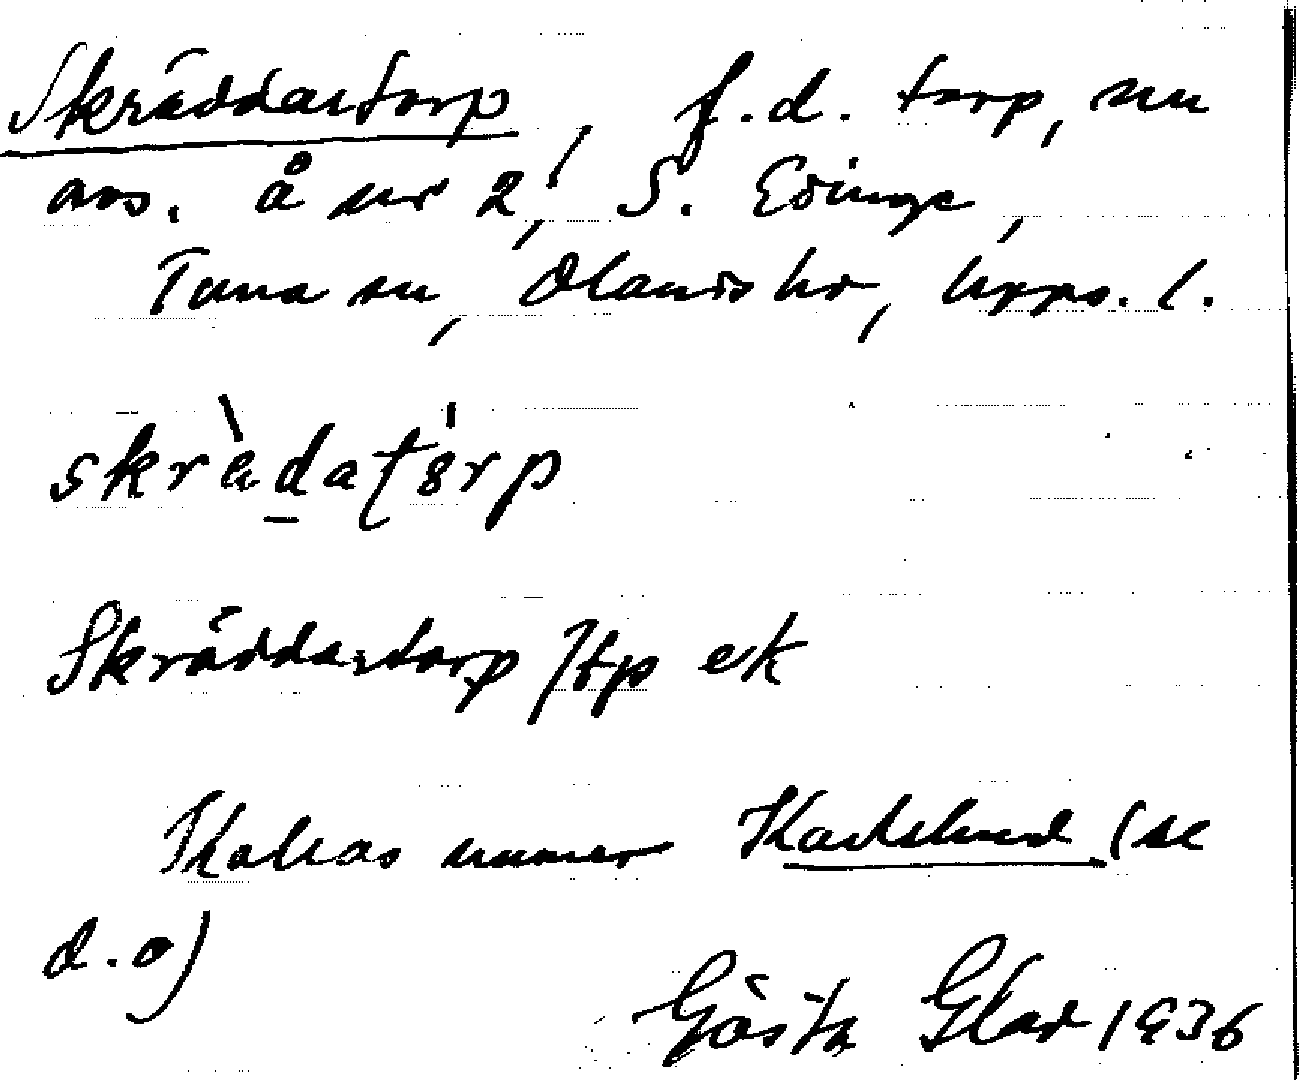 Skräddartorp, f.d. torp, nu
avs. å nr 2, S. Edinge,
Tuna sn, Olands hd, Upps. l.
skrädatorp
Skräddartorp /tp ek
Kallas numer Karlslund (se
d.o)
Gösta Glad 1936